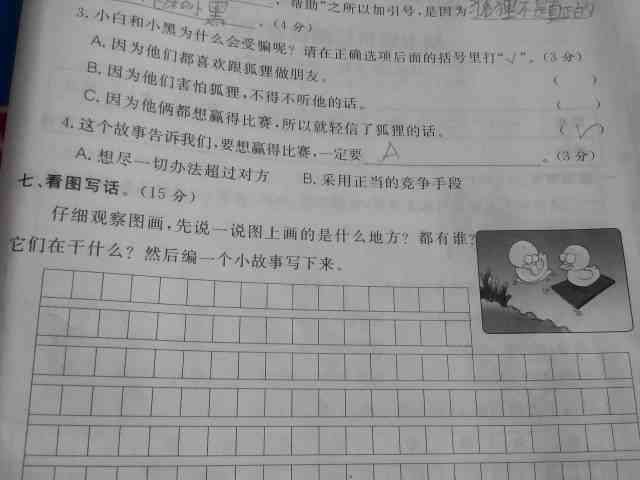 小黑 。(4分) 帮助"之所以加引号,是因为狐狸不是真正的
3. 小白和小黑为什么会受骗呢? 请在正确选项后面的括号里打"√"。(3分)
A. 因为他们都喜欢跟狐狸做朋友。 ( )
B. 因为他们害怕狐狸,不得不听他的话。 ( )
C. 因为他俩都想赢得比赛,所以就轻信了狐狸的话。 (√)
4. 这个故事告诉我们,要想赢得比赛,一定要 A 。(3分)
A. 想尽一切办法超过对方 B. 采用正当的竞争手段
七、看图写话。(15分)
仔细观察图画,先说一说图上画的是什么地方? 都有谁?
它们在干什么? 然后编一个小故事写下来。